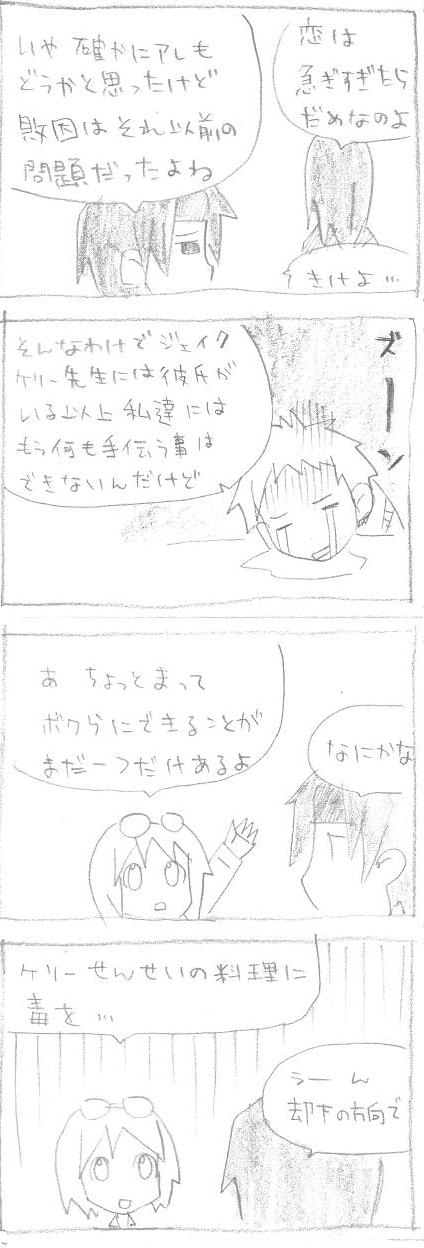 恋は
急ぎすぎたら
だめなのよ
きけよ…
いや 確かにアレも
どうかと思ったけど
敗因はそれ以前の
問題だったよね
ズーン
そんなわけで ジェイク
ケリー先生には彼氏が
いる以上 私達には
もう何も手伝う事は
できないんだけど
あ ちょっとまって
ボクらにできることが
まだ一つだけあるよ
なにかな
ケリーせんせいの料理に
毒を…
うーん
却下の方向で